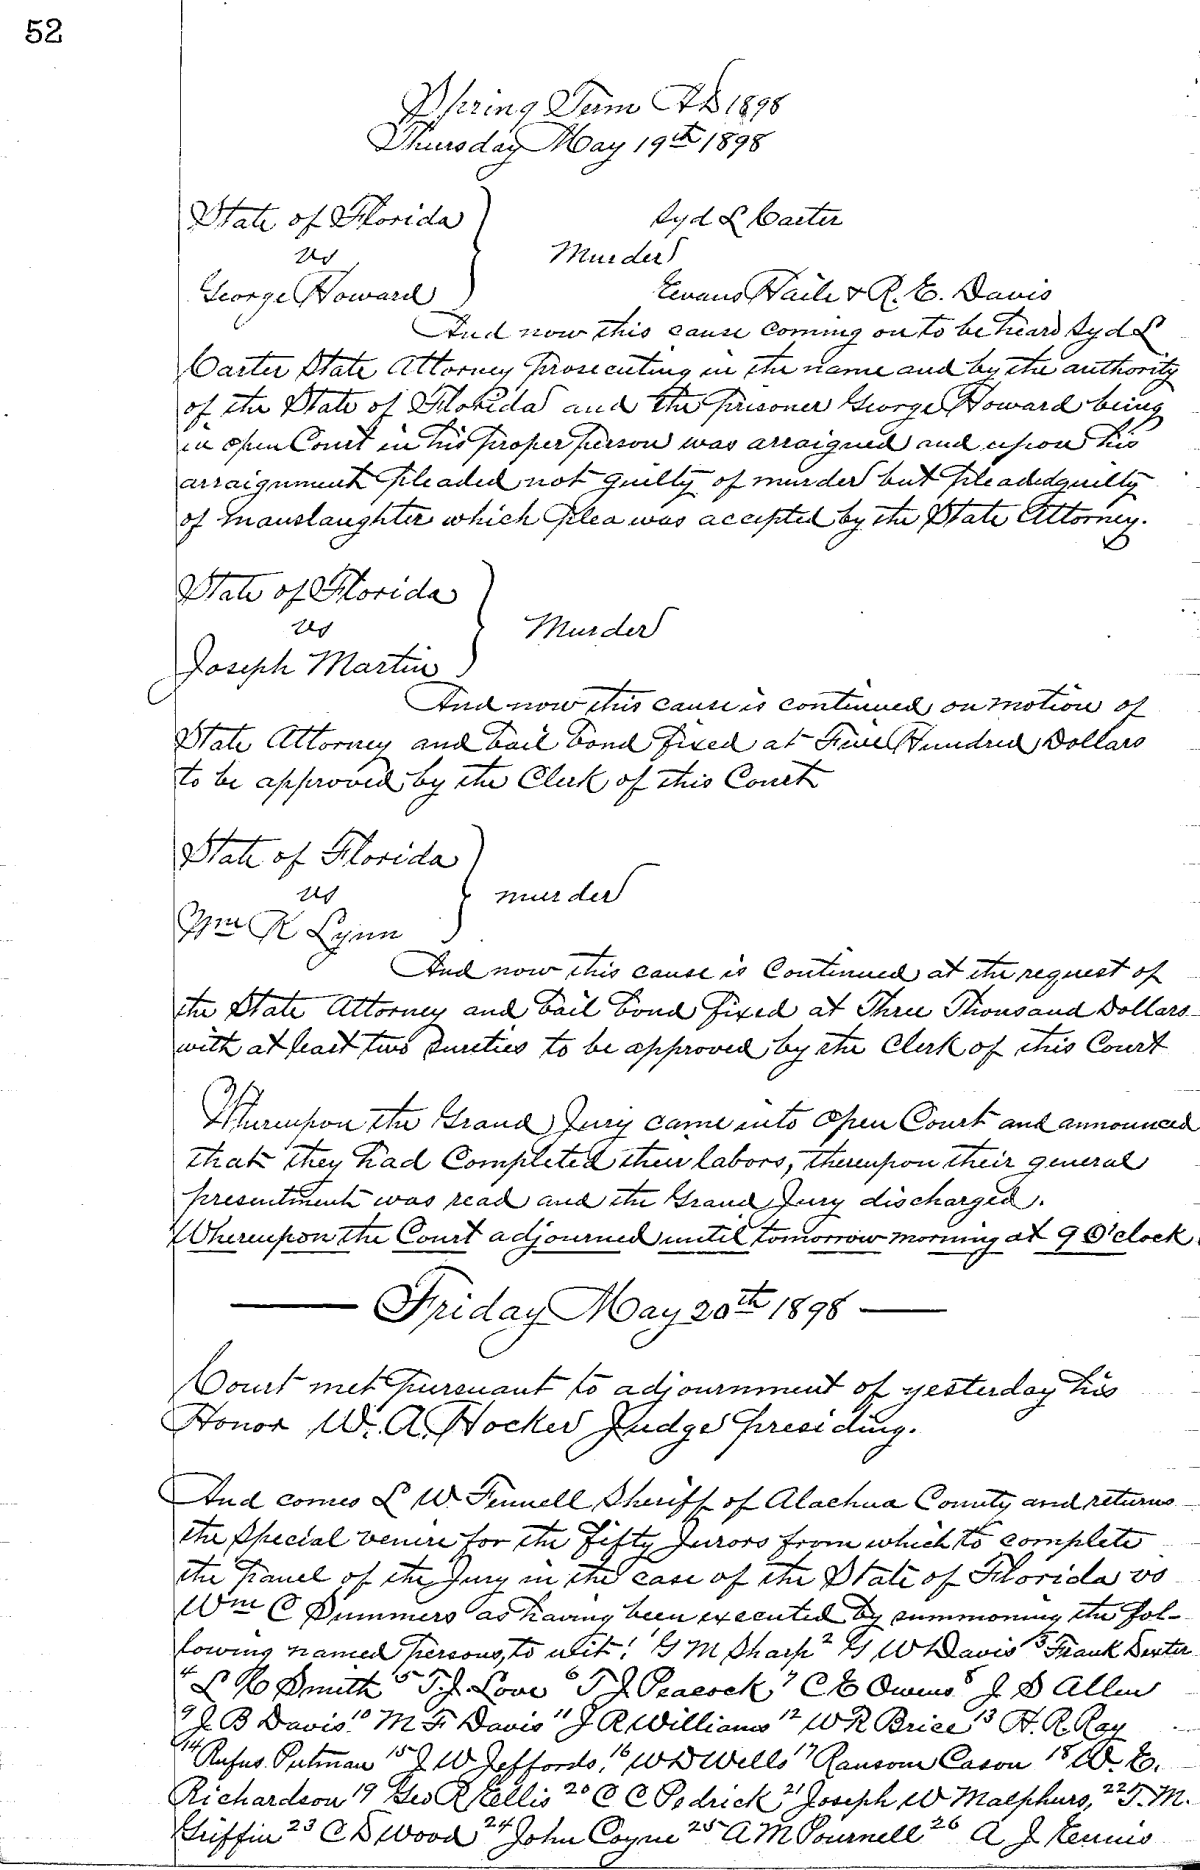 52
Spring Term AD 1898
Thursday May 19th 1898
State of Florida
vs
George Howard
Murder
Syd L Carter
Evans Haile & R. E. Davis
And now this cause coming on to be heard Syd L
Carter State Attorney prosecuting in the name and by the authority
of the State of Florida and the prisoner George Howard being
in open Court in his proper person was arraigned and upon his
arraignment pleaded not guilty of murder but pleaded guilty
of manslaughter which plea was accepted by the State Attorney.
State of Florida
vs
Joseph Martin
Murder
And now this cause is continued on motion of
State Attorney and bail bond fixed at Five Hundred Dollars
to be approved by the Clerk of this Court
State of Florida
vs
Wm R Lynn
murder
And now this cause is Continued at the request of
the State Attorney and bail bond fixed at Three Thousand Dollars
with at least two sureties to be approved by the Clerk of this Court
Whereupon the Grand Jury came into open Court and announced
that they had Completed their labors, thereupon their general
presentment was read and the Grand Jury discharged.
Whereupon the Court adjourned until tomorrow morning at 9 O'clock
Friday May 20th 1898
Court met pursuant to adjournment of yesterday his
Honor W. A. Hocker Judge presiding.
And comes L W Fennell Sheriff of Alachua County and returns
the special venire for the fifty Jurors from which to complete
the panel of the Jury in the case of the State of Florida vs
Wm C Summers as having been executed by summoning the fol-
lowing named persons, to wit: 1 G M Sharp 2 G W Davis 3 Frank Dexter
4 L K Smith 5 T. J. Love 6 T J Peacock 7 C E Owens 8 J S Allen
9 J. B Davis 10 M F Davis 11 J R Williams 12 W R Brice 13 H. R. Ray
14 Rufus Putman 15 J W Jeffords, 16 W D Wells 17 Ransom Cason 18 W. E.
Richardson 19 Geo R Ellis 20 C C Pedrick 21 Joseph W Malphurs, 22 T. M.
Griffin 23 C D Wood 24 John Coyne 25 A M Pournell 26 A J Tennis